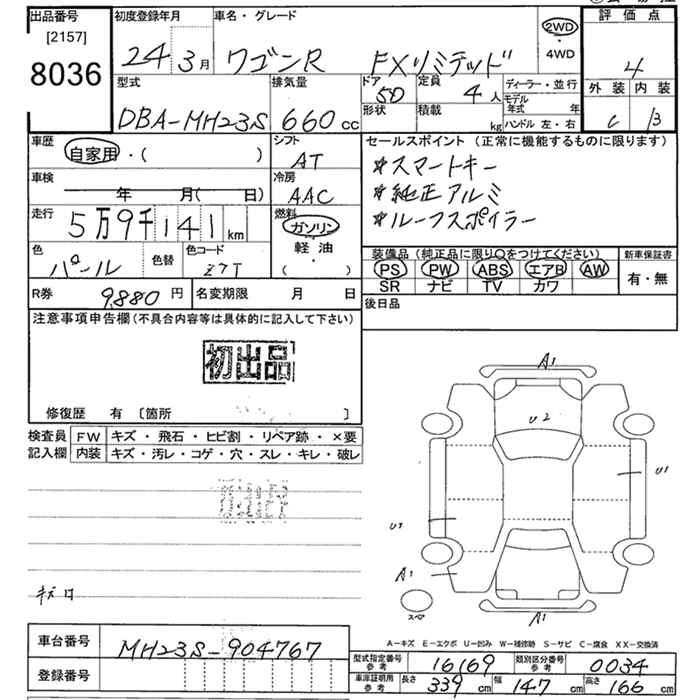 出品番号 初度登録年月 車名・グレード 2WD 評価点
[2157] 24 3月 ワゴンR FXリミテッド ・ 4
8036 4WD
型式 排気量 ドア 5D 定員 4人 ディーラー・並行 外装 内装
DBA-MH23S 660cc 形状 積載 kg モデル年式 年 C B
ハンドル 左・右
車歴 自家用・( ) シフト AT セールスポイント (正常に機能するものに限ります)
車検 年 月( 日) 冷房 AAC *スマートキー
*純正アルミ
走行 5万9千141km 燃料 ガソリン *ルーフスポイラー
軽油
・( )
色 パール 色替 色コード Z7T 装備品(純正品に限り○をつけてください) 新車保証書
PS PW ABS エアB AW 有・無
SR ナビ TV カワ
R券 9,880円 名変期限 月 日 後日品
注意事項申告欄(不具合内容等は具体的に記入して下さい)
初出品
修復歴 有 〔箇所 〕
検査員 FW キズ・飛石・ヒビ割・リペア跡・×要
記入欄 内装 キズ・汚レ・コゲ・穴・スレ・キレ・破レ
A1
U2
U1
A1
スペア
A1
A-キズ E-エクボ U-凹み W-補修跡 S-サビ C-腐食 XX-交換済
車台番号 MH23S-904767
登録番号
型式指定番号 参考 16169 類別区分番号 参考 0034
車庫証明用 参考 長さ 339cm 幅 147cm 高さ 166cm